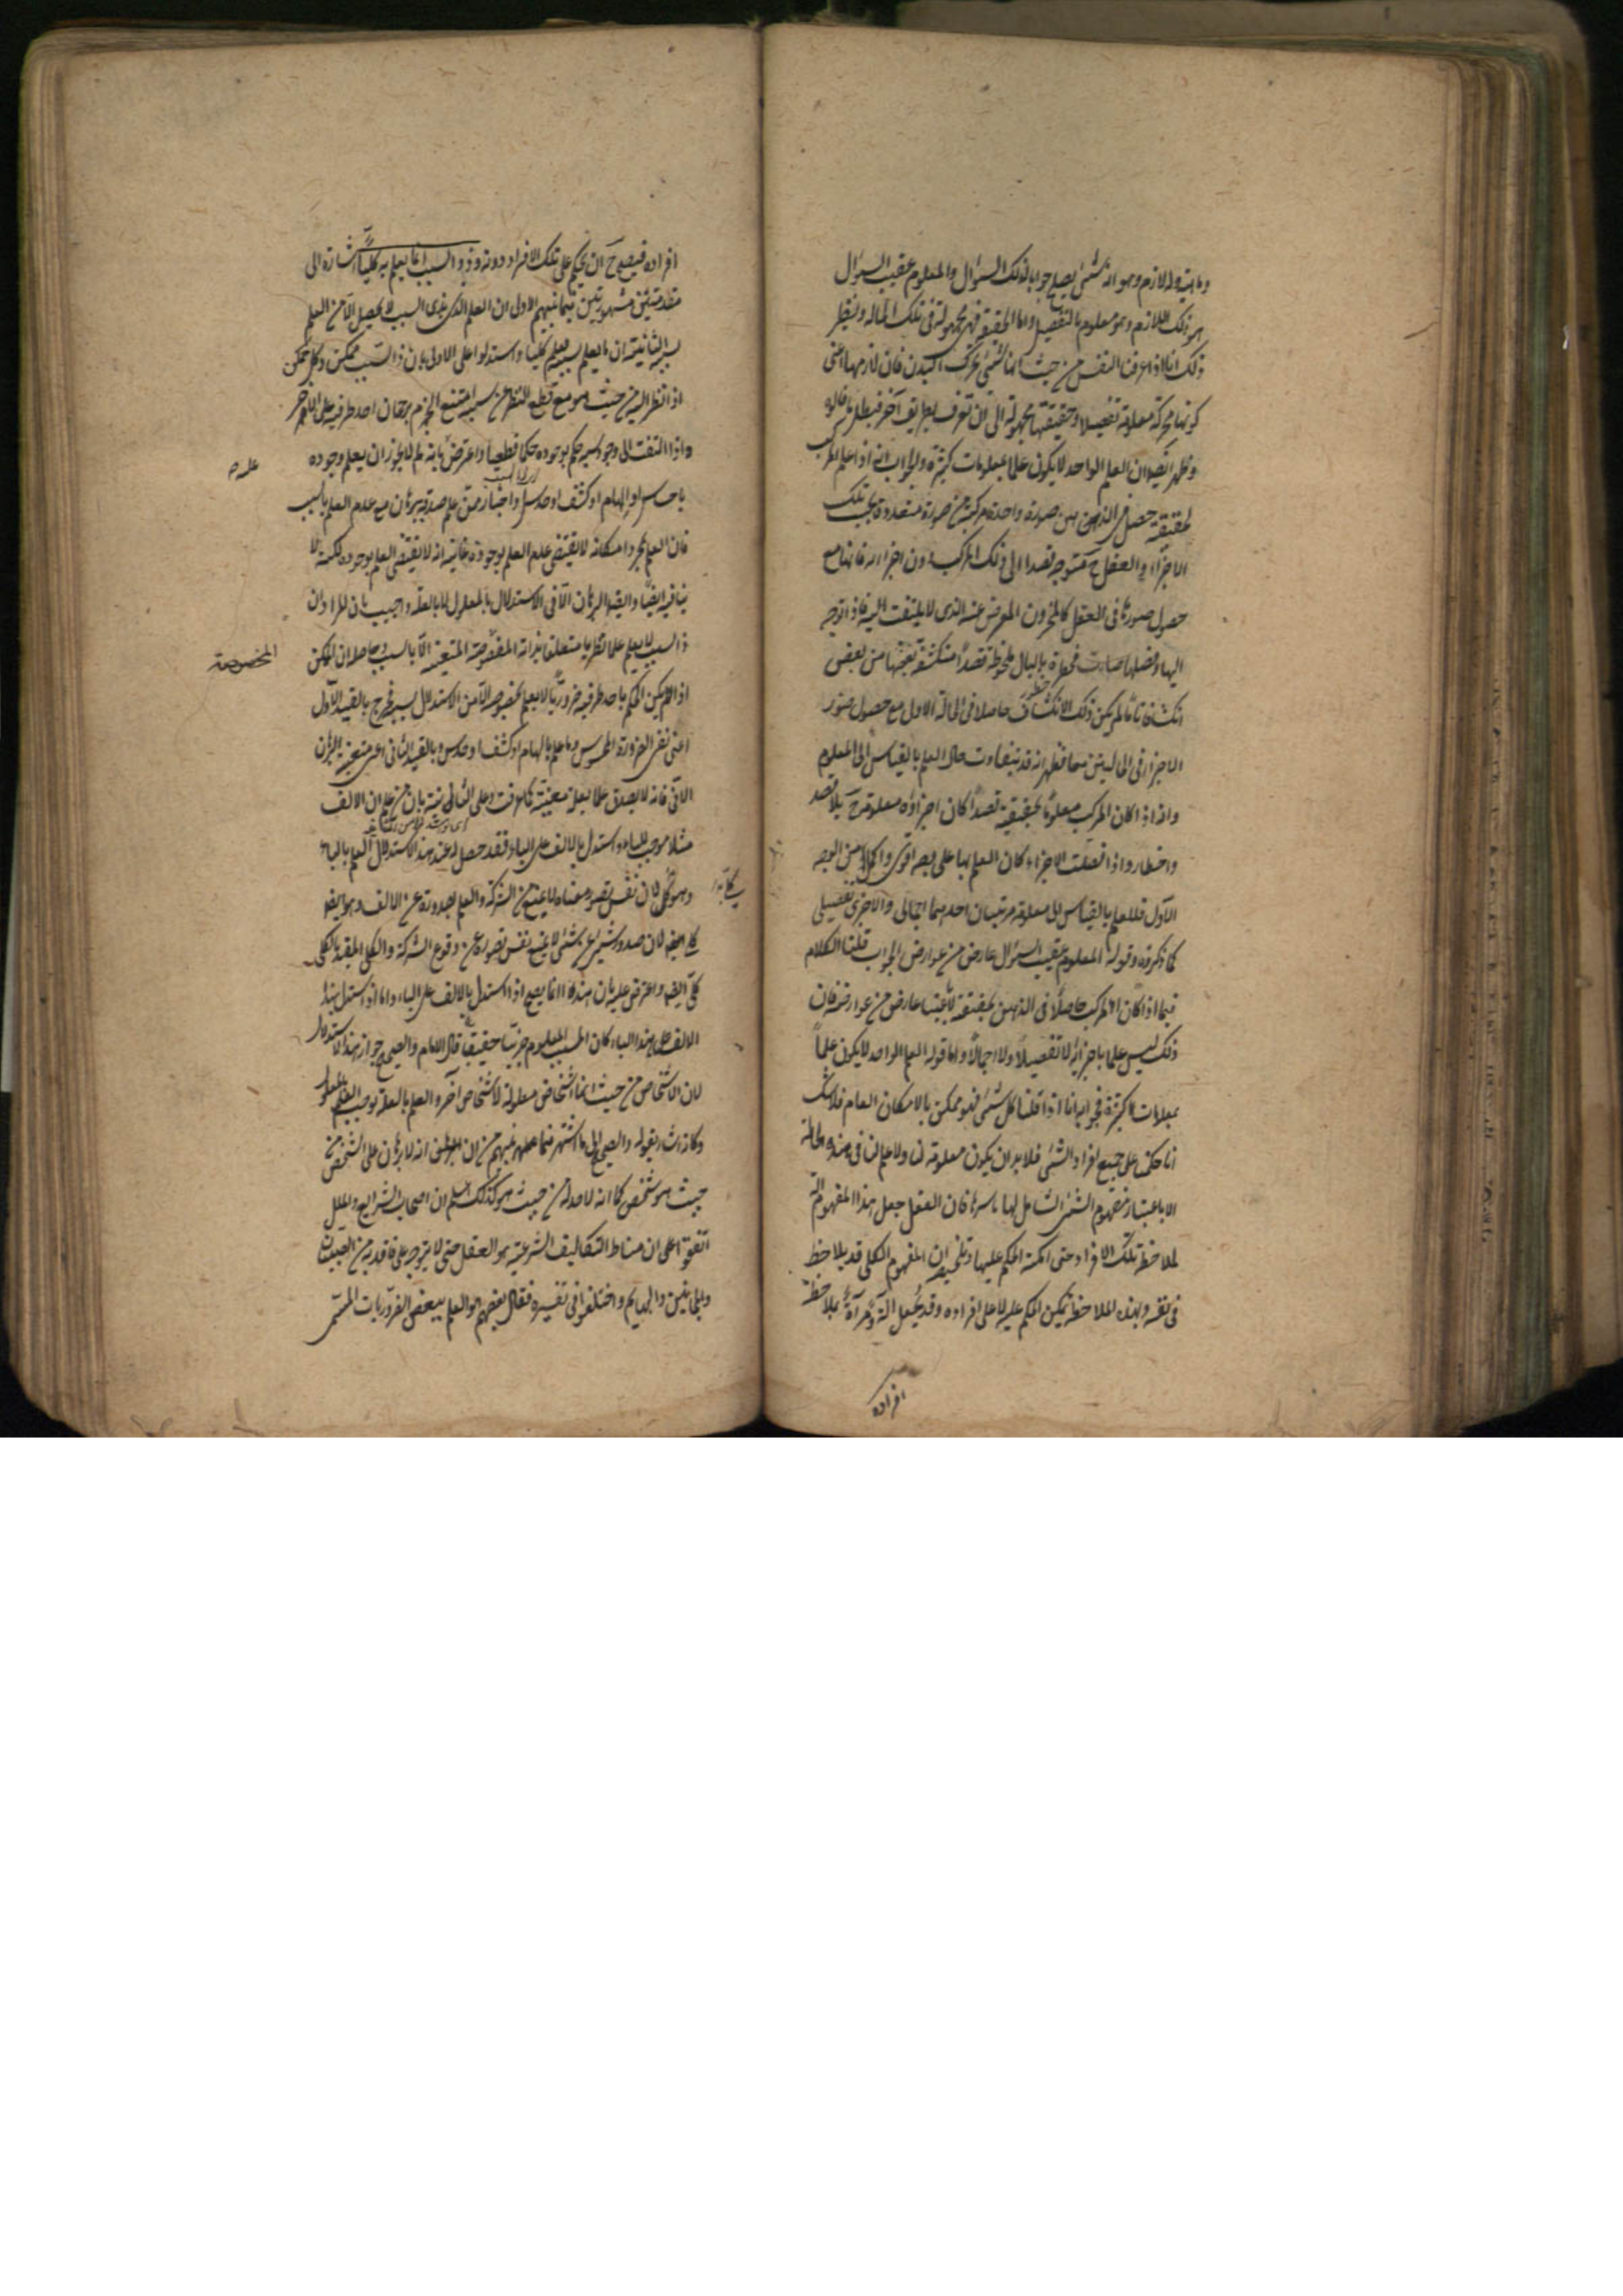 وماهيته وله لازم وهو انه شئ يصلح جوابا لذلك السؤال والمعلوم عقيب السؤال
هو ذلك اللازم وهو معلوم بالتفصيل واما الحقيقة فهى مجهولة فى تلك الحالة ونظير
ذلك انا اذا عرفنا النفس من حيث انها شئ يحرك البدن فان لازمها اعنى
كونها محركة معلومة تفصيلا وحقيقتها مجهولة الى ان تعرف بطريق آخر فبطل ما قالوه
وظهر ايضا ان العلم الواحد لا يكون علما بمعلومات كثيرة والجواب انه اذا علم المركب
بحقيقته حصل فى الذهن صورة واحدة مركبة من صور متعددة بحسب تلك
الاجزاء والعقل ح متوجه قصدا الى ذلك المركب دون اجزائه فانها مع
حصول صورها فى العقل كالمخزون المعرض عنه الذى لا يلتفت اليه فاذا توجه
اليها وفصلها صارت مخطرة بالبال ملحوظة قصدا منكشفة بعضها من بعض
انكشافا تاما لم يكن ذلك الانكشاف حاصلا فى الحالة الاولى مع حصول صور
الاجزاء فى الحالتين معا فظهر انه قد يتفاوت حال العلم بالقياس الى المعلوم
وانه اذا كان المركب معلوما بحقيقته قصدا كان اجزاؤه معلومة ح بلا قصد
واخطار واذا فصلت الاجزاء كان العلم بها على وجه اقوى واكمل من الوجه
الاول فللعلم بالقياس الى معلومه مرتبتان احدهما اجمالى والاخرى تفصيلى
كما ذكروه وقوله المعلوم عقيب السؤال عارض من عوارض الجواب قلنا الكلام
فيما اذا كان المركب حاصلا فى الذهن بحقيقته لا باعتبار عارض من عوارضه فان
ذلك ليس علما باجزائه لا تفصيلا ولا اجمالا واما قوله العلم الواحد لا يكون علما
بمعلومات كثيرة فجوابه انا اذا قلنا كل شئ فهو ممكن بالامكان العام فلا شك
انا حكمنا على جميع افراد الشئ فلا بد ان يكون معلومة لنا ولا علم لنا فى هذه الحالة
الا باعتبار مفهوم الشئ الشامل لها باسرها فان العقل جعل هذا المفهوم آلة
لملاحظة تلك الافراد حتى امكنه الحكم عليها وتلخيصه ان المفهوم الكلى قد يلاحظ
فى نفسه وبهذه الملاحظة يمكن الحكم عليه لا على افراده وقد يجعل آلة ومرآة لملاحظة
افراده
افراده فيصلح ح ان يحكم على تلك الافراد دونه وذو السبب انما يعلم به كليا اشارة الى
مقدمتين مشهورتين فيما بينهم الاولى ان العلم الذى بذى السبب لا يحصل الا من العلم
بسببه الثانية ان ما يعلم بسببه يعلم كليا واستدلوا على الاولى بان ذا السبب ممكن وكل ممكن
اذا نظر اليه من حيث هو مع قطع النظر عن سببه امتنع الجزم برجحان احد طرفيه على الآخر
واذا التفت الى وجود سببه حكم بوجوده حكما قطعيا واعترض بانه لم لا يجوز ان يعلم وجوده
علمه
باحساس او الهام او كشف او حدس او اخبار ممن علم صدقه ببرهان مع عدم العلم بالسبب
فان العلم بمجرد امكانه لا يقتضى عدم العلم بوجوده غايته انه لا يقتضى العلم بوجوده لكنه لا
ينافيه ايضا وايضا البرهان الانى الاستدلال بالمعلول لا بالعلة واجيب بان المراد ان
ذا السبب لا يعلم علما نظريا متعلقا بذاته المخصوصة المتعينة الا بالسبب وحاصله ان الممكن
المخصوصة
اذا لم يكن الحكم باحد طرفيه ضروريا لا يعلم بخصوصه الا من الاستدلال بسببه فخرج بالقيد الاول
اعنى نفى الضرورة المحسوس وما علم بالهام او كشف او حدس وبالقيد الثانى اعنى متعينة البرهان
الانى فانه لا يصدق علما بعلة معينة كما عرفت وعلى الثانية بان من علم ان الالف
مثلا موجب للباء واستدل بالالف على الباء فقد حصل له عند هذا الاستدلال العلم بالباء
وهو كلى لان نفس تصور معناه لا يمنع من الشركة والعلم بصدوره عن الالف وهو ايضا
كلى ايضا لان صدور شئ عن شئ لا يمنع نفس تصوره عن وقوع الشركة والكلى المقيد بالكلى
كلى ايضا واعترض عليه بان هذا انما يصح اذا استدل بالالف على الباء واما اذا استدل بهذا
الالف على هذا الباء كان المسبب المعلوم جزئيا حقيقيا قال الامام والصحيح جواز هذا الاستدلال
لان الاشخاص من حيث انها اشخاص معلولة لاشخاص آخر والعلم بالعلة يوجب العلم بالمعلول
وكانه اشار بقوله والصحيح الى ما اشتهر فيما بينهم من ان البرهان انه لا برهان على الشخص من
حيث هو شخص كما انه لا حد له من حيث هو كذلك اعلم ان اصحاب الشرايع والملل
اتفقوا على ان مناط التكاليف الشرعية هو العقل حتى لا يتوجه على فاقديه من الصبيان
والمجانين والبهايم واختلفوا فى تفسيره فقال بعضهم هو العلم ببعض الضروريات المسمى